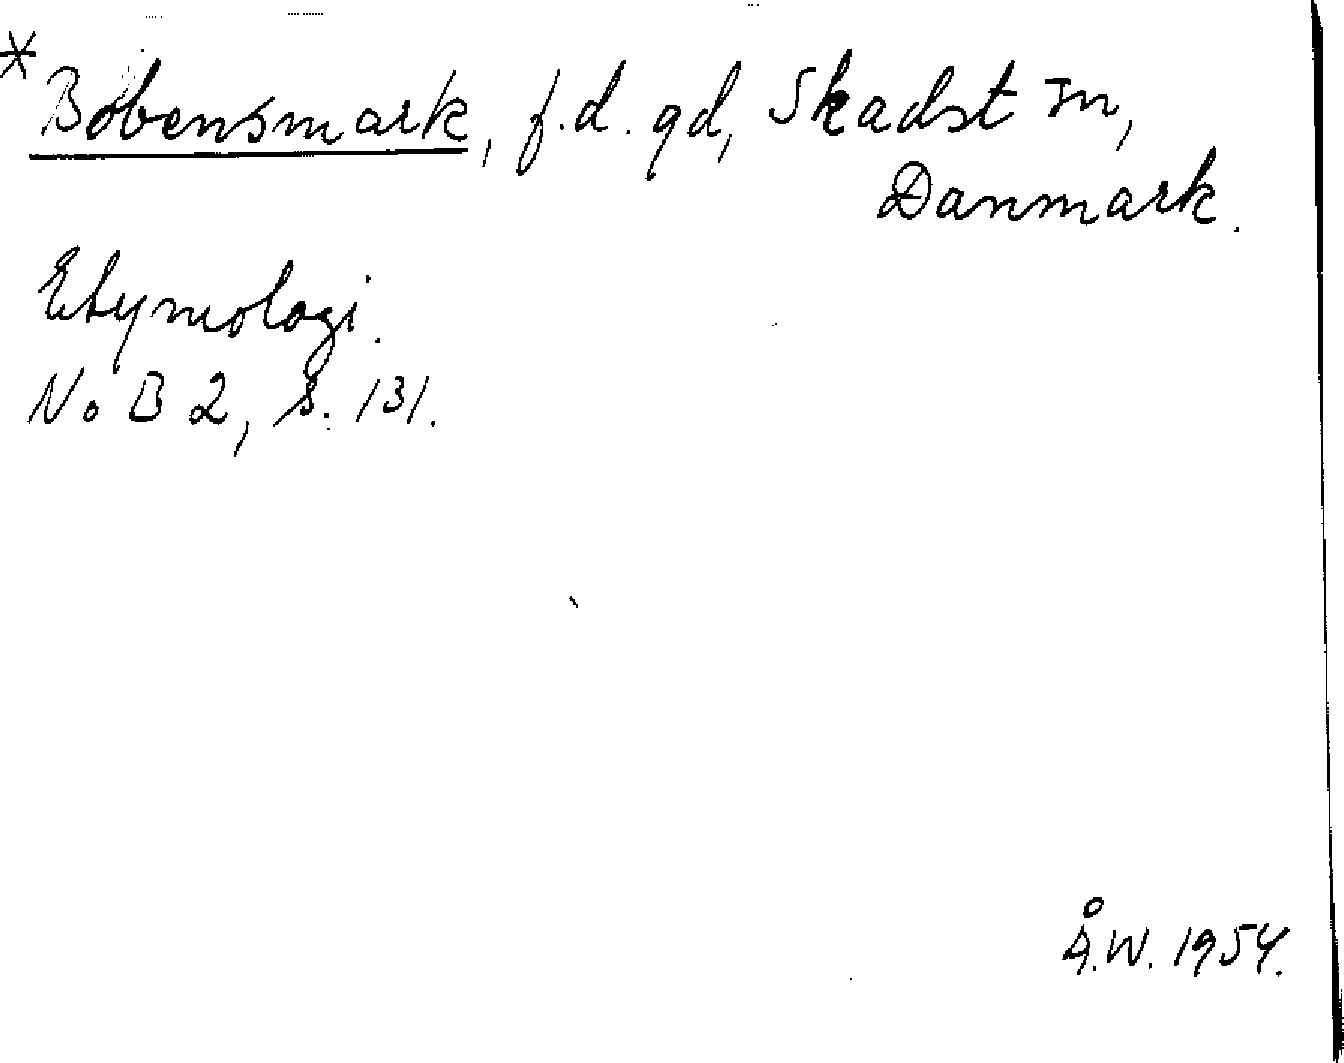 *Bobensmark, f.d. gd, Skadst sn,
Danmark.
Etymologi.
NoB 2, s. 131.
Å.W. 1954.